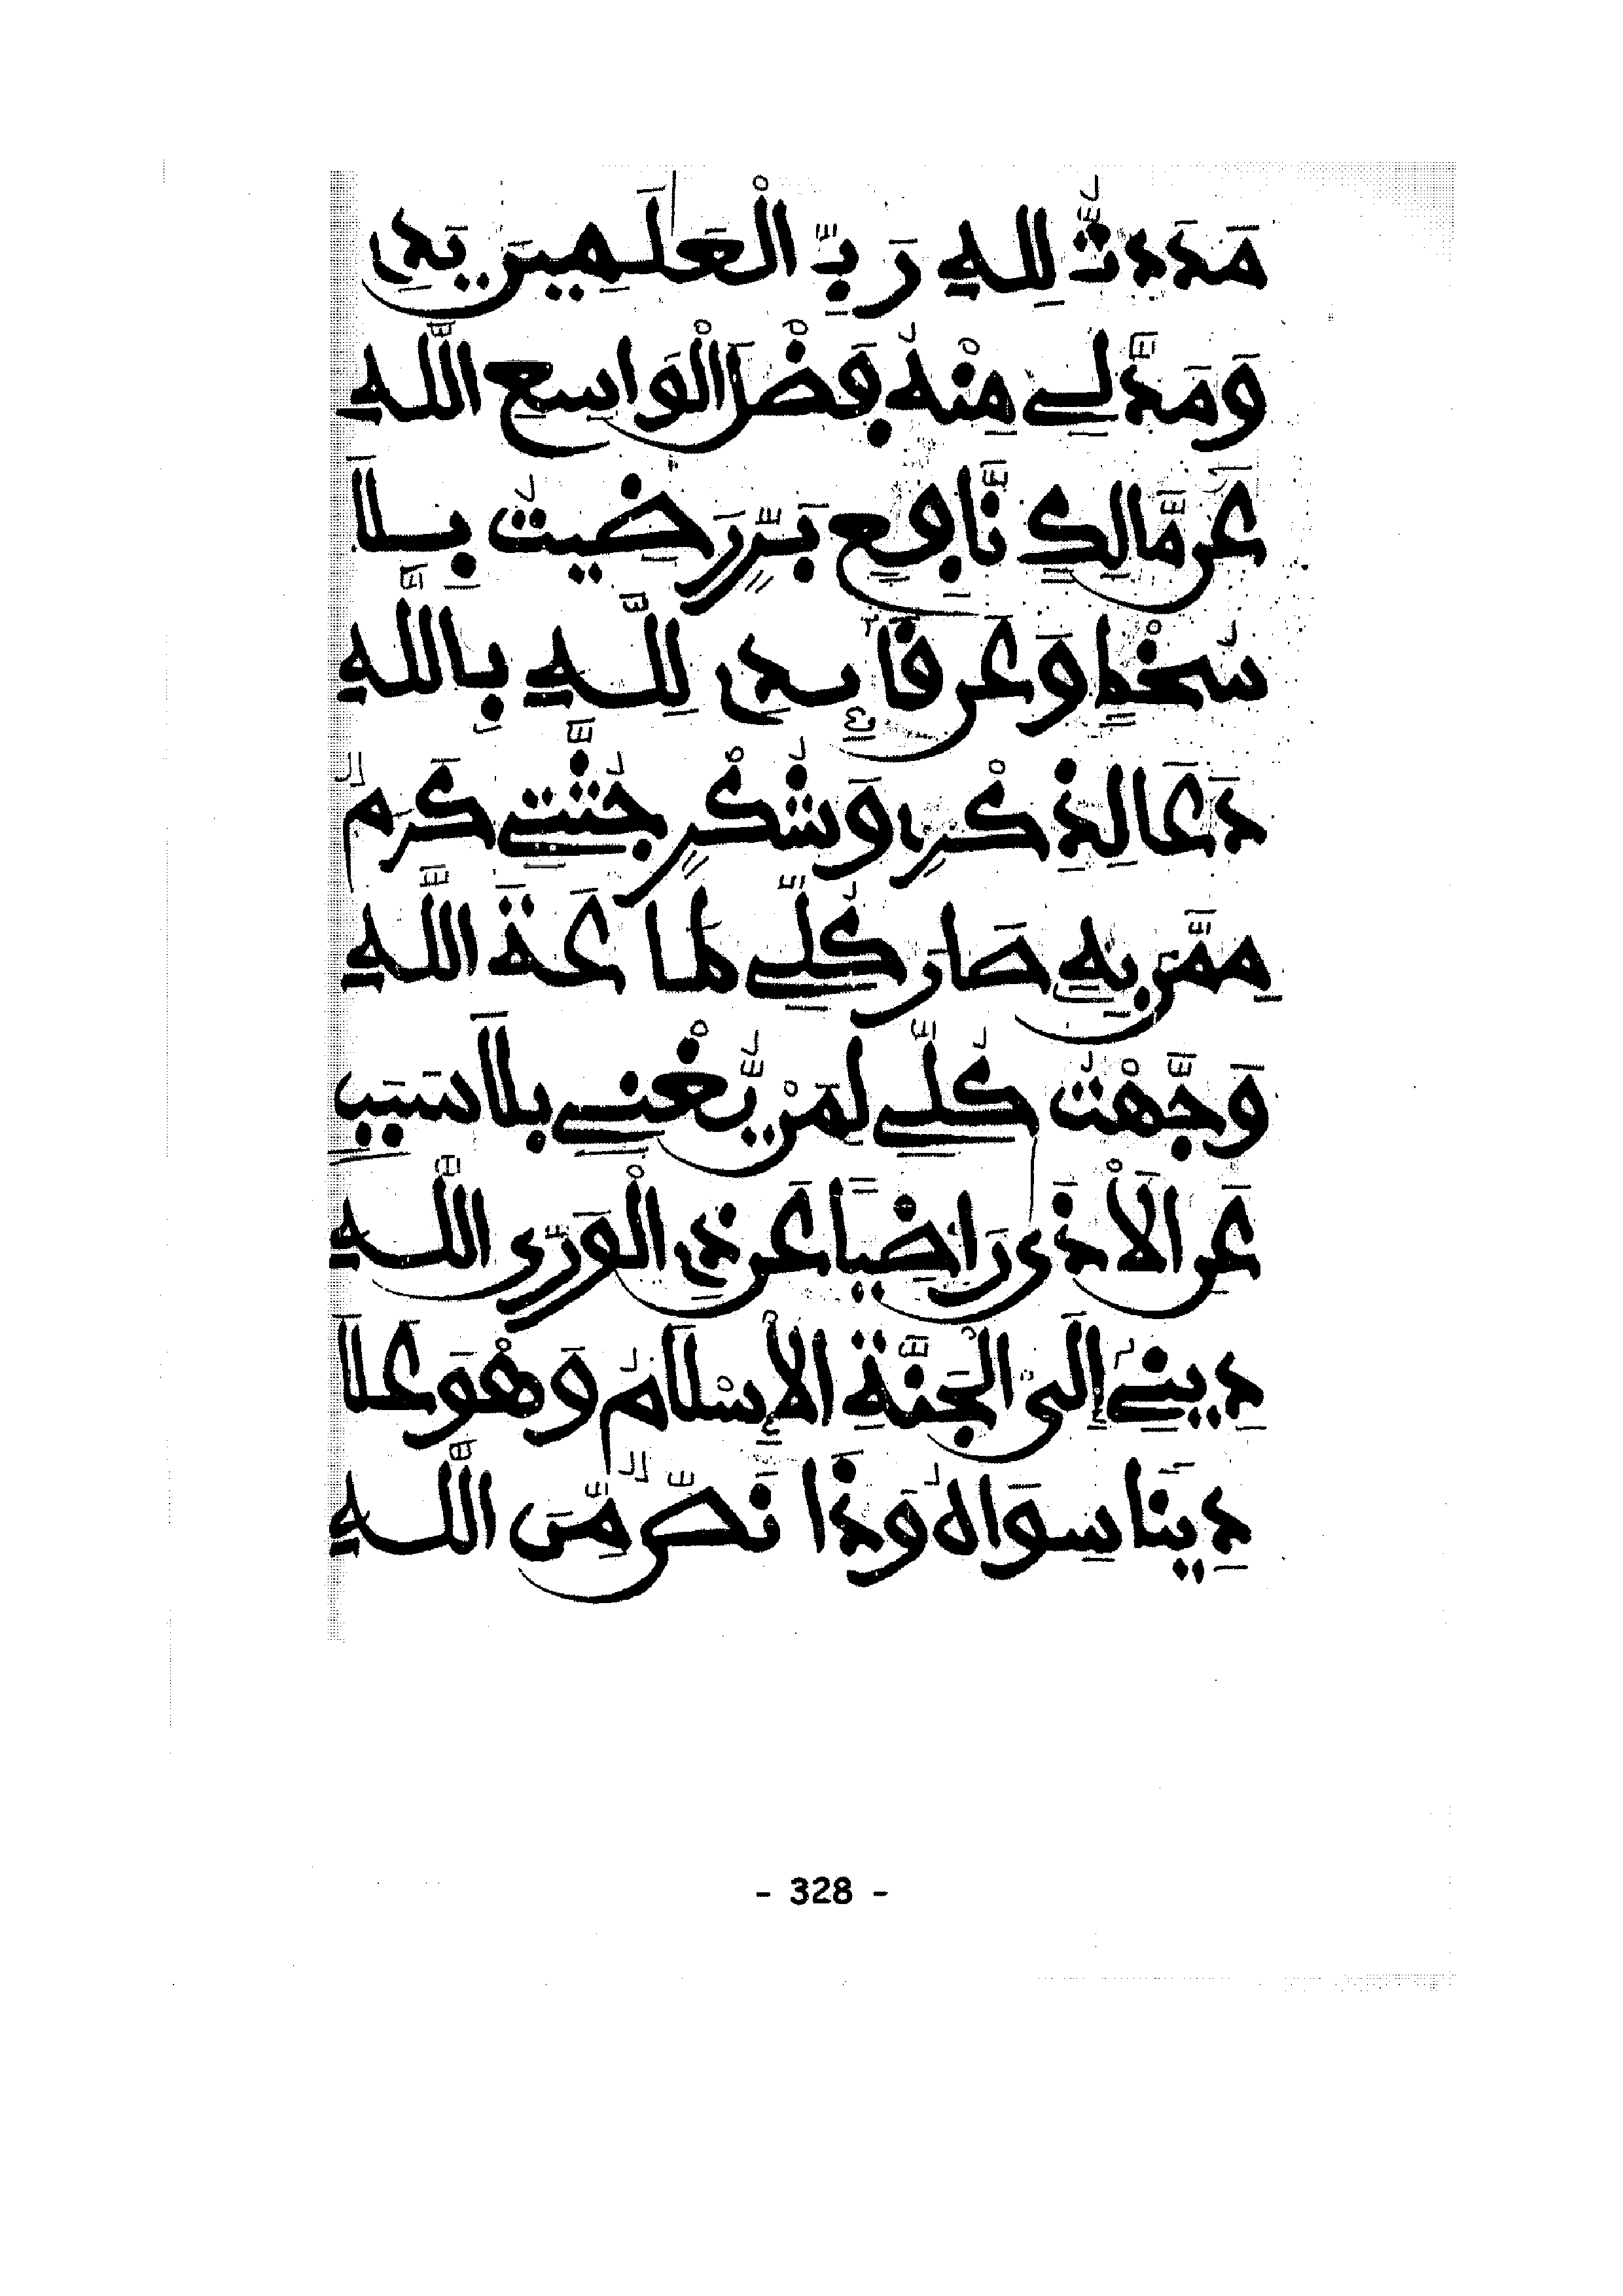 مَدَدتُّ لِلهِ رَبِّ الْعَلَمِينَ يَدِي
وَمَدَّ لِي مِنْهُ بِفَضْلِ الْوَاسِعِ اللَّهِ
عَن مَّالِكٍ نَّافِعٍ بَرٍّ رَضِيتُ بِلَا
سُخْطٍ وَعَن قَائِدِي لِلَّهِ بِاللَّهِ
دَعَا لِذِكْرٍ وَشُكْرٍ جُثَّتِي كَرَمٌ
مِمَّن بِهِ صَارَ كُلِّي طَاعَةَ اللَّهِ
وَجَّهْتُ كُلِّي لِمَنْ يُّغْنِي بِلَا سَبَبٍ
عَنِ الْأَذَى رَاضِيًا عَن ذِي الْوَرَى اللَّهِ
دِينِي إِلَى الْجَنَّةِ الْإِسْلَامُ وَهْوَ عَلَا
دِينًا سِوَاهُ وَذَا نَصٌّ مِّنَ اللَّهِ
- 328 -